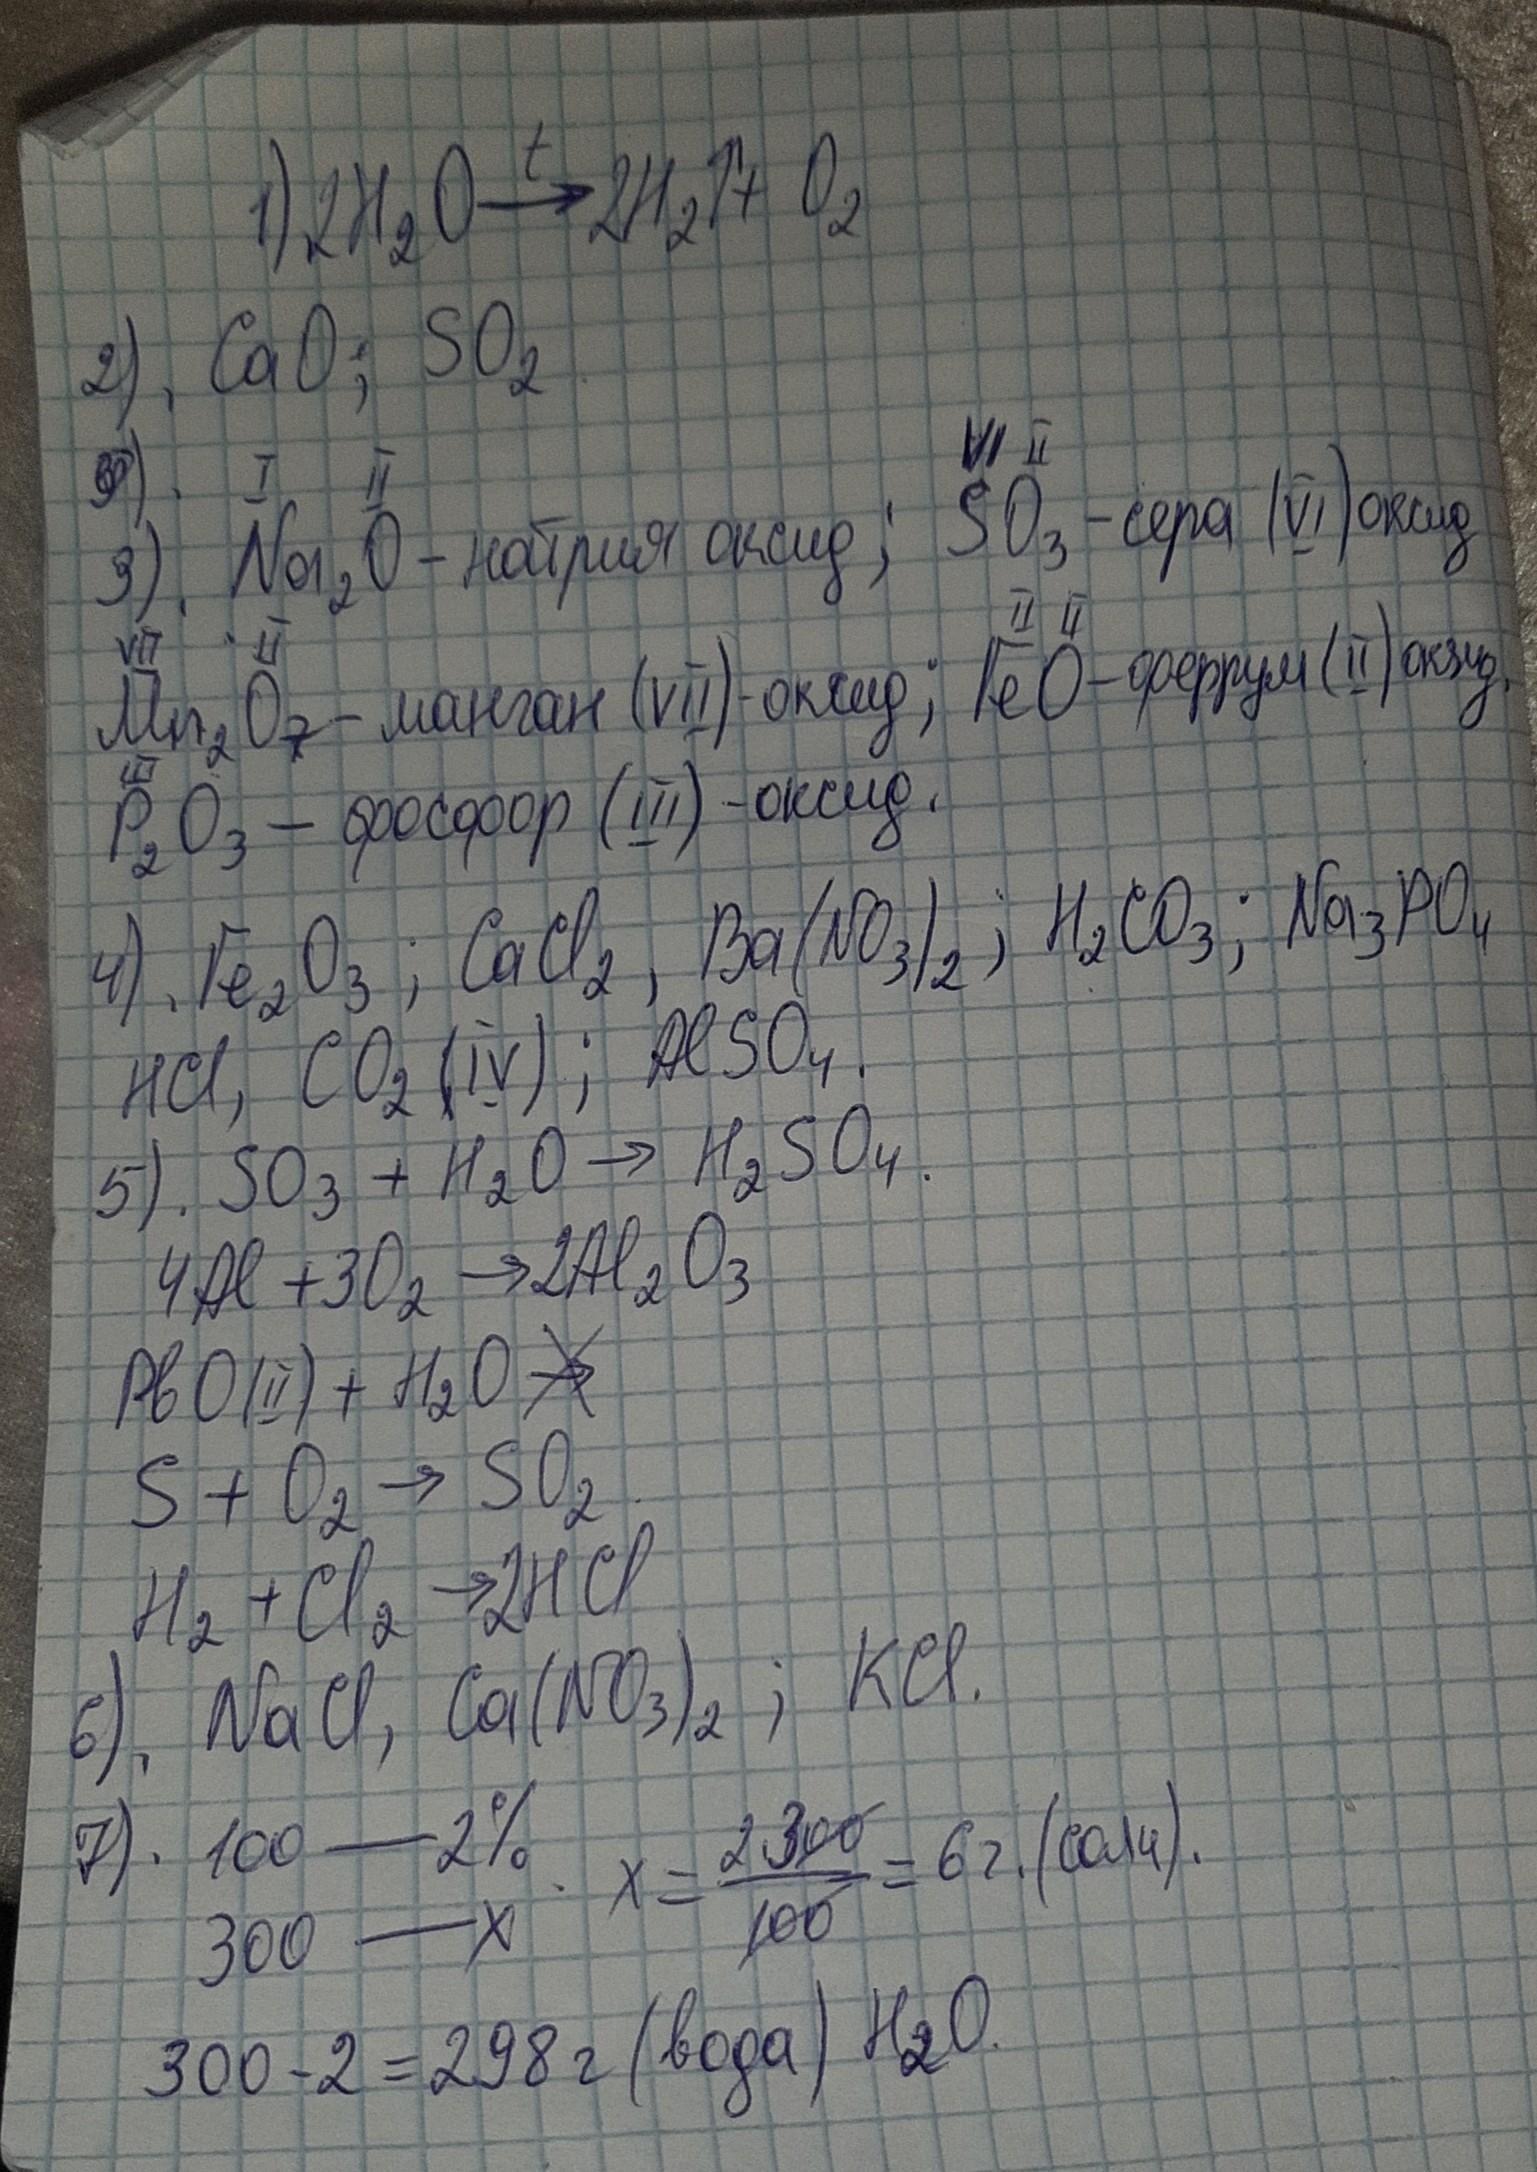 1) 2H₂O →ᵗ 2H₂↑ + O₂
2). CaO; SO₂
I II VI II
3). Na₂O – натрия оксид; SO₃ – сера (VI) оксид
VII II II II
Mn₂O₇ – манган (VII)-оксид; FeO – феррум (II) оксид.
III
P₂O₃ – фосфор (III) - оксид.
4). Fe₂O₃; CaCl₂, Ba(NO₃)₂; H₂CO₃; Na₃PO₄
HCl, CO₂ (IV); AlSO₄.
5). SO₃ + H₂O → H₂SO₄.
4Al + 3O₂ → 2Al₂O₃
PbO(II) + H₂O ↛
S + O₂ → SO₂.
H₂ + Cl₂ → 2HCl
6). NaCl, Ca(NO₃)₂; KCl.
7). 100 — 2% x = 2·300/100 = 6 г. (соли).
300 — x
300 - 2 = 298 г (вода) H₂O.